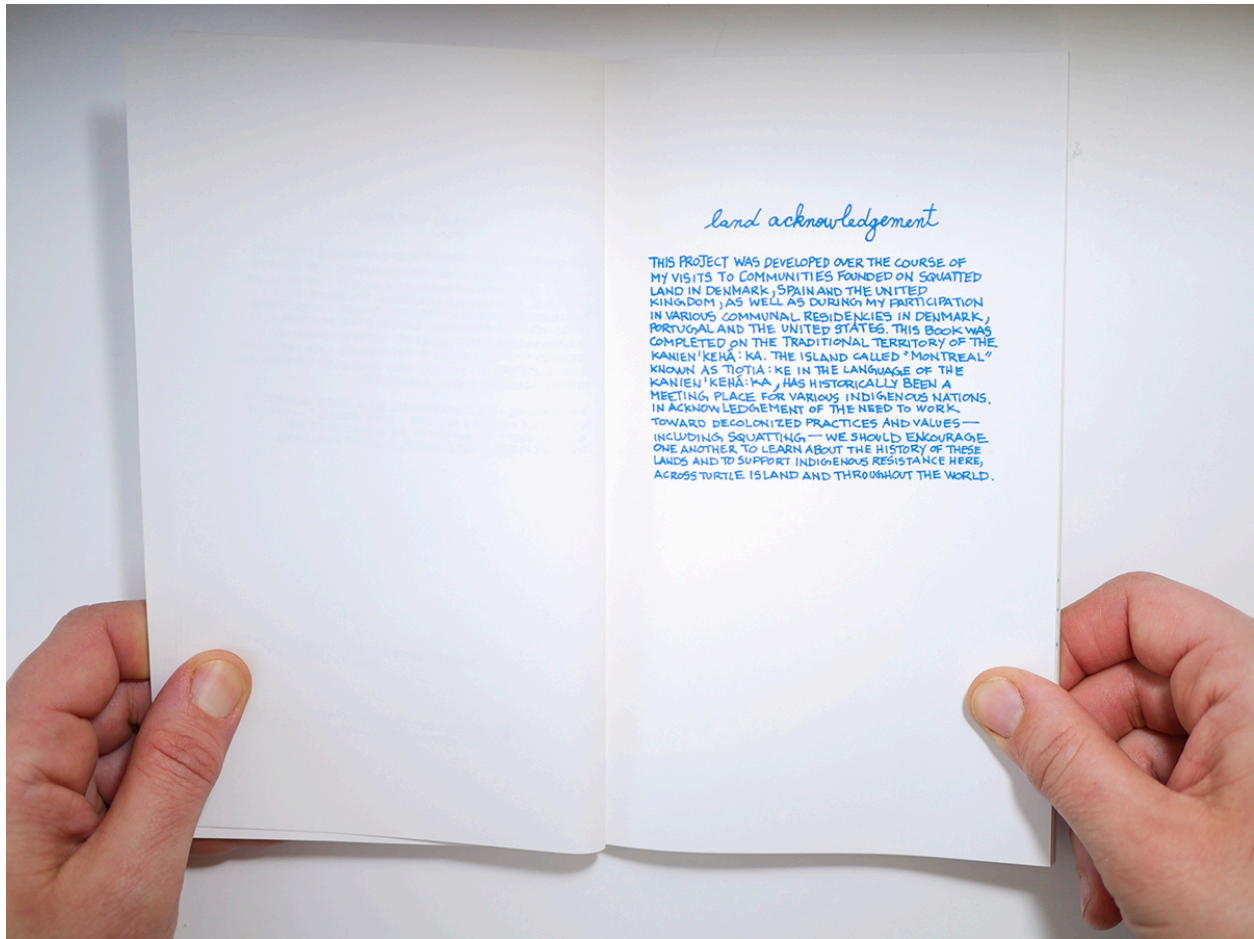 land acknowledgement
THIS PROJECT WAS DEVELOPED OVER THE COURSE OF
MY VISITS TO COMMUNITIES FOUNDED ON SQUATTED
LAND IN DENMARK, SPAIN AND THE UNITED
KINGDOM, AS WELL AS DURING MY PARTICIPATION
IN VARIOUS COMMUNAL RESIDENCIES IN DENMARK,
PORTUGAL AND THE UNITED STATES. THIS BOOK WAS
COMPLETED ON THE TRADITIONAL TERRITORY OF THE
KANIEN'KEHÁ:KA. THE ISLAND CALLED "MONTREAL"
KNOWN AS TIOTIA:KE IN THE LANGUAGE OF THE
KANIEN'KEHÁ:KA, HAS HISTORICALLY BEEN A
MEETING PLACE FOR VARIOUS INDIGENOUS NATIONS.
IN ACKNOWLEDGEMENT OF THE NEED TO WORK
TOWARD DECOLONIZED PRACTICES AND VALUES—
INCLUDING SQUATTING—WE SHOULD ENCOURAGE
ONE ANOTHER TO LEARN ABOUT THE HISTORY OF THESE
LANDS AND TO SUPPORT INDIGENOUS RESISTANCE HERE,
ACROSS TURTLE ISLAND AND THROUGHOUT THE WORLD.